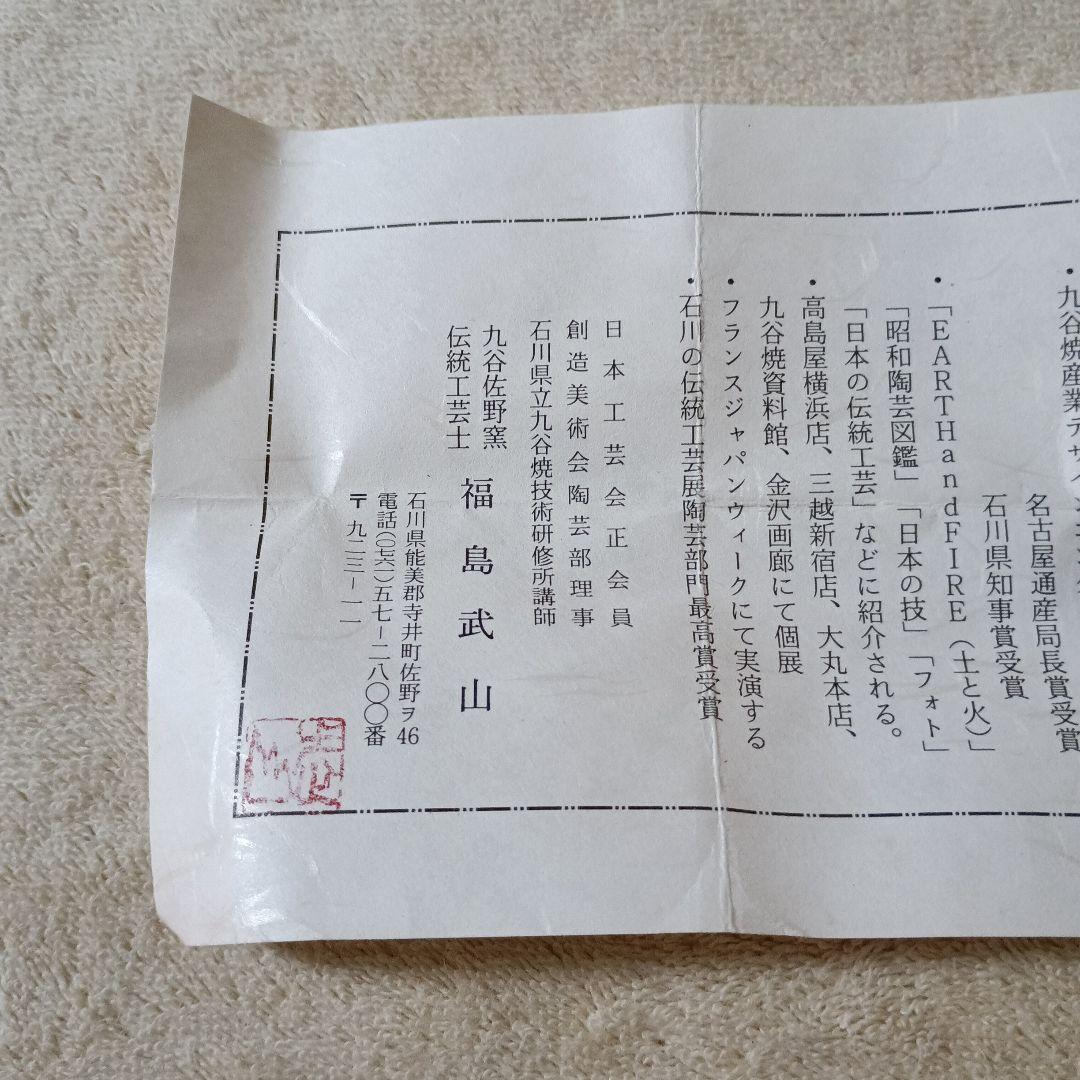 ・九谷焼産業デザイン
名古屋通産局長賞受賞
石川県知事賞受賞
・「EARTHandFIRE（土と火）」
「昭和陶芸図鑑」「日本の技」「フォト」
「日本の伝統工芸」などに紹介される。
・高島屋横浜店、三越新宿店、大丸本店、
九谷焼資料館、金沢画廊にて個展
・フランスジャパンウィークにて実演する
・石川の伝統工芸展陶芸部門最高賞受賞
日本工芸会正会員
創造美術会陶芸部理事
石川県立九谷焼技術研修所講師
九谷佐野窯
伝統工芸士
福島武山
石川県能美郡寺井町佐野ヲ46
電話(〇七六一)五七－二八〇〇番
〒九二三－一一